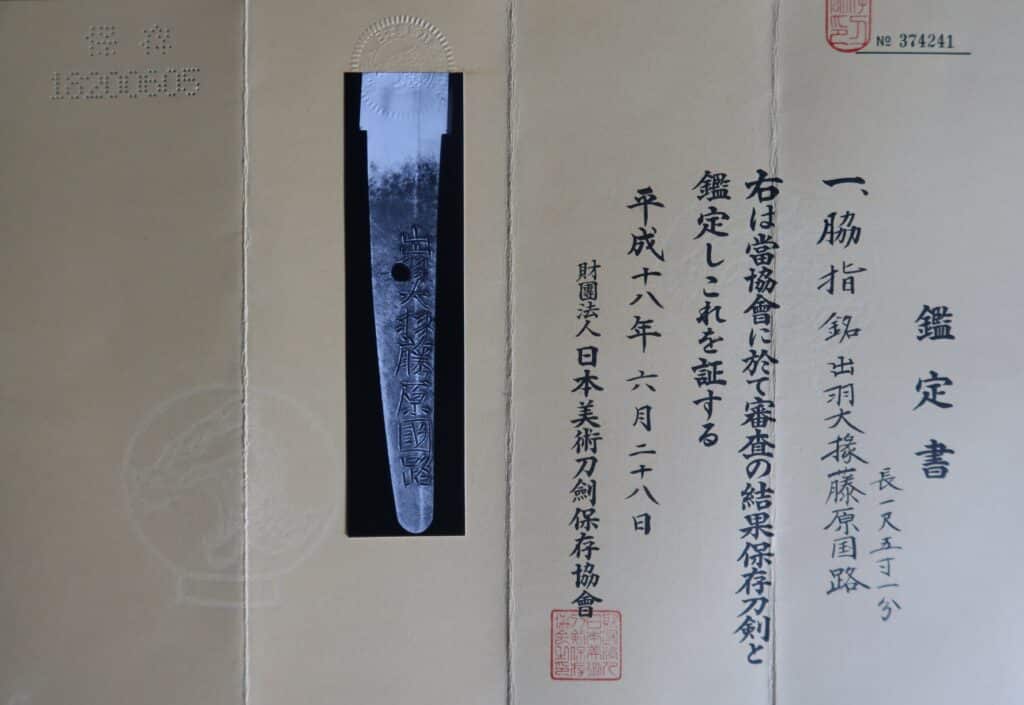 № 374241
鑑定書
一、脇指 銘 出羽大掾藤原国路
長一尺五寸一分
右は當協會に於て審査の結果保存刀剣と
鑑定しこれを証する
平成十八年六月二十八日
財團法人 日本美術刀劍保存協會
出羽大掾藤原國路
保存